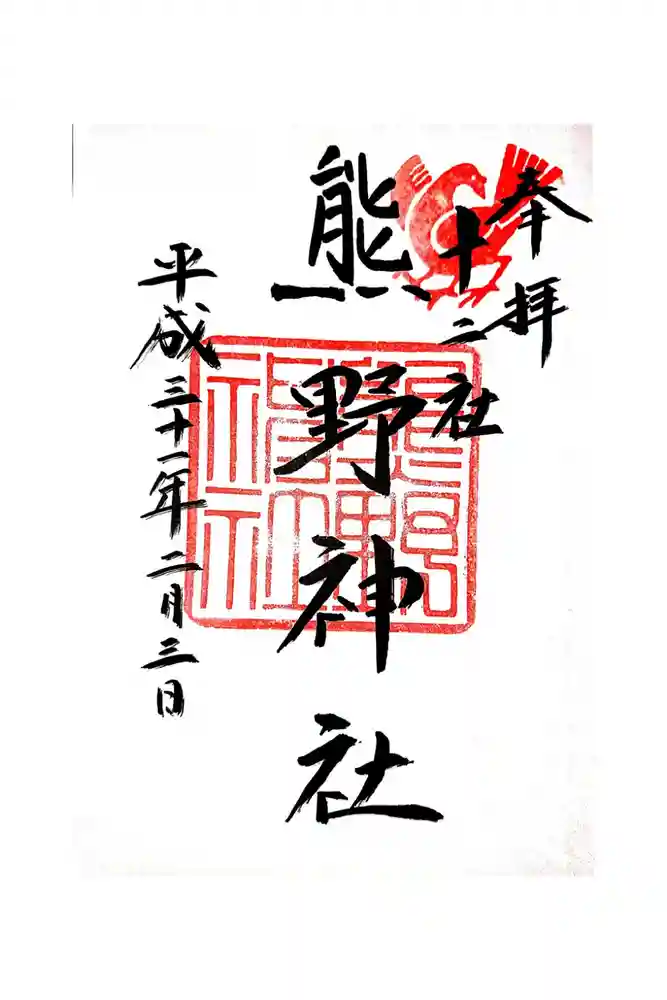 奉拝
十二社
熊野神社
平成三十一年二月三日